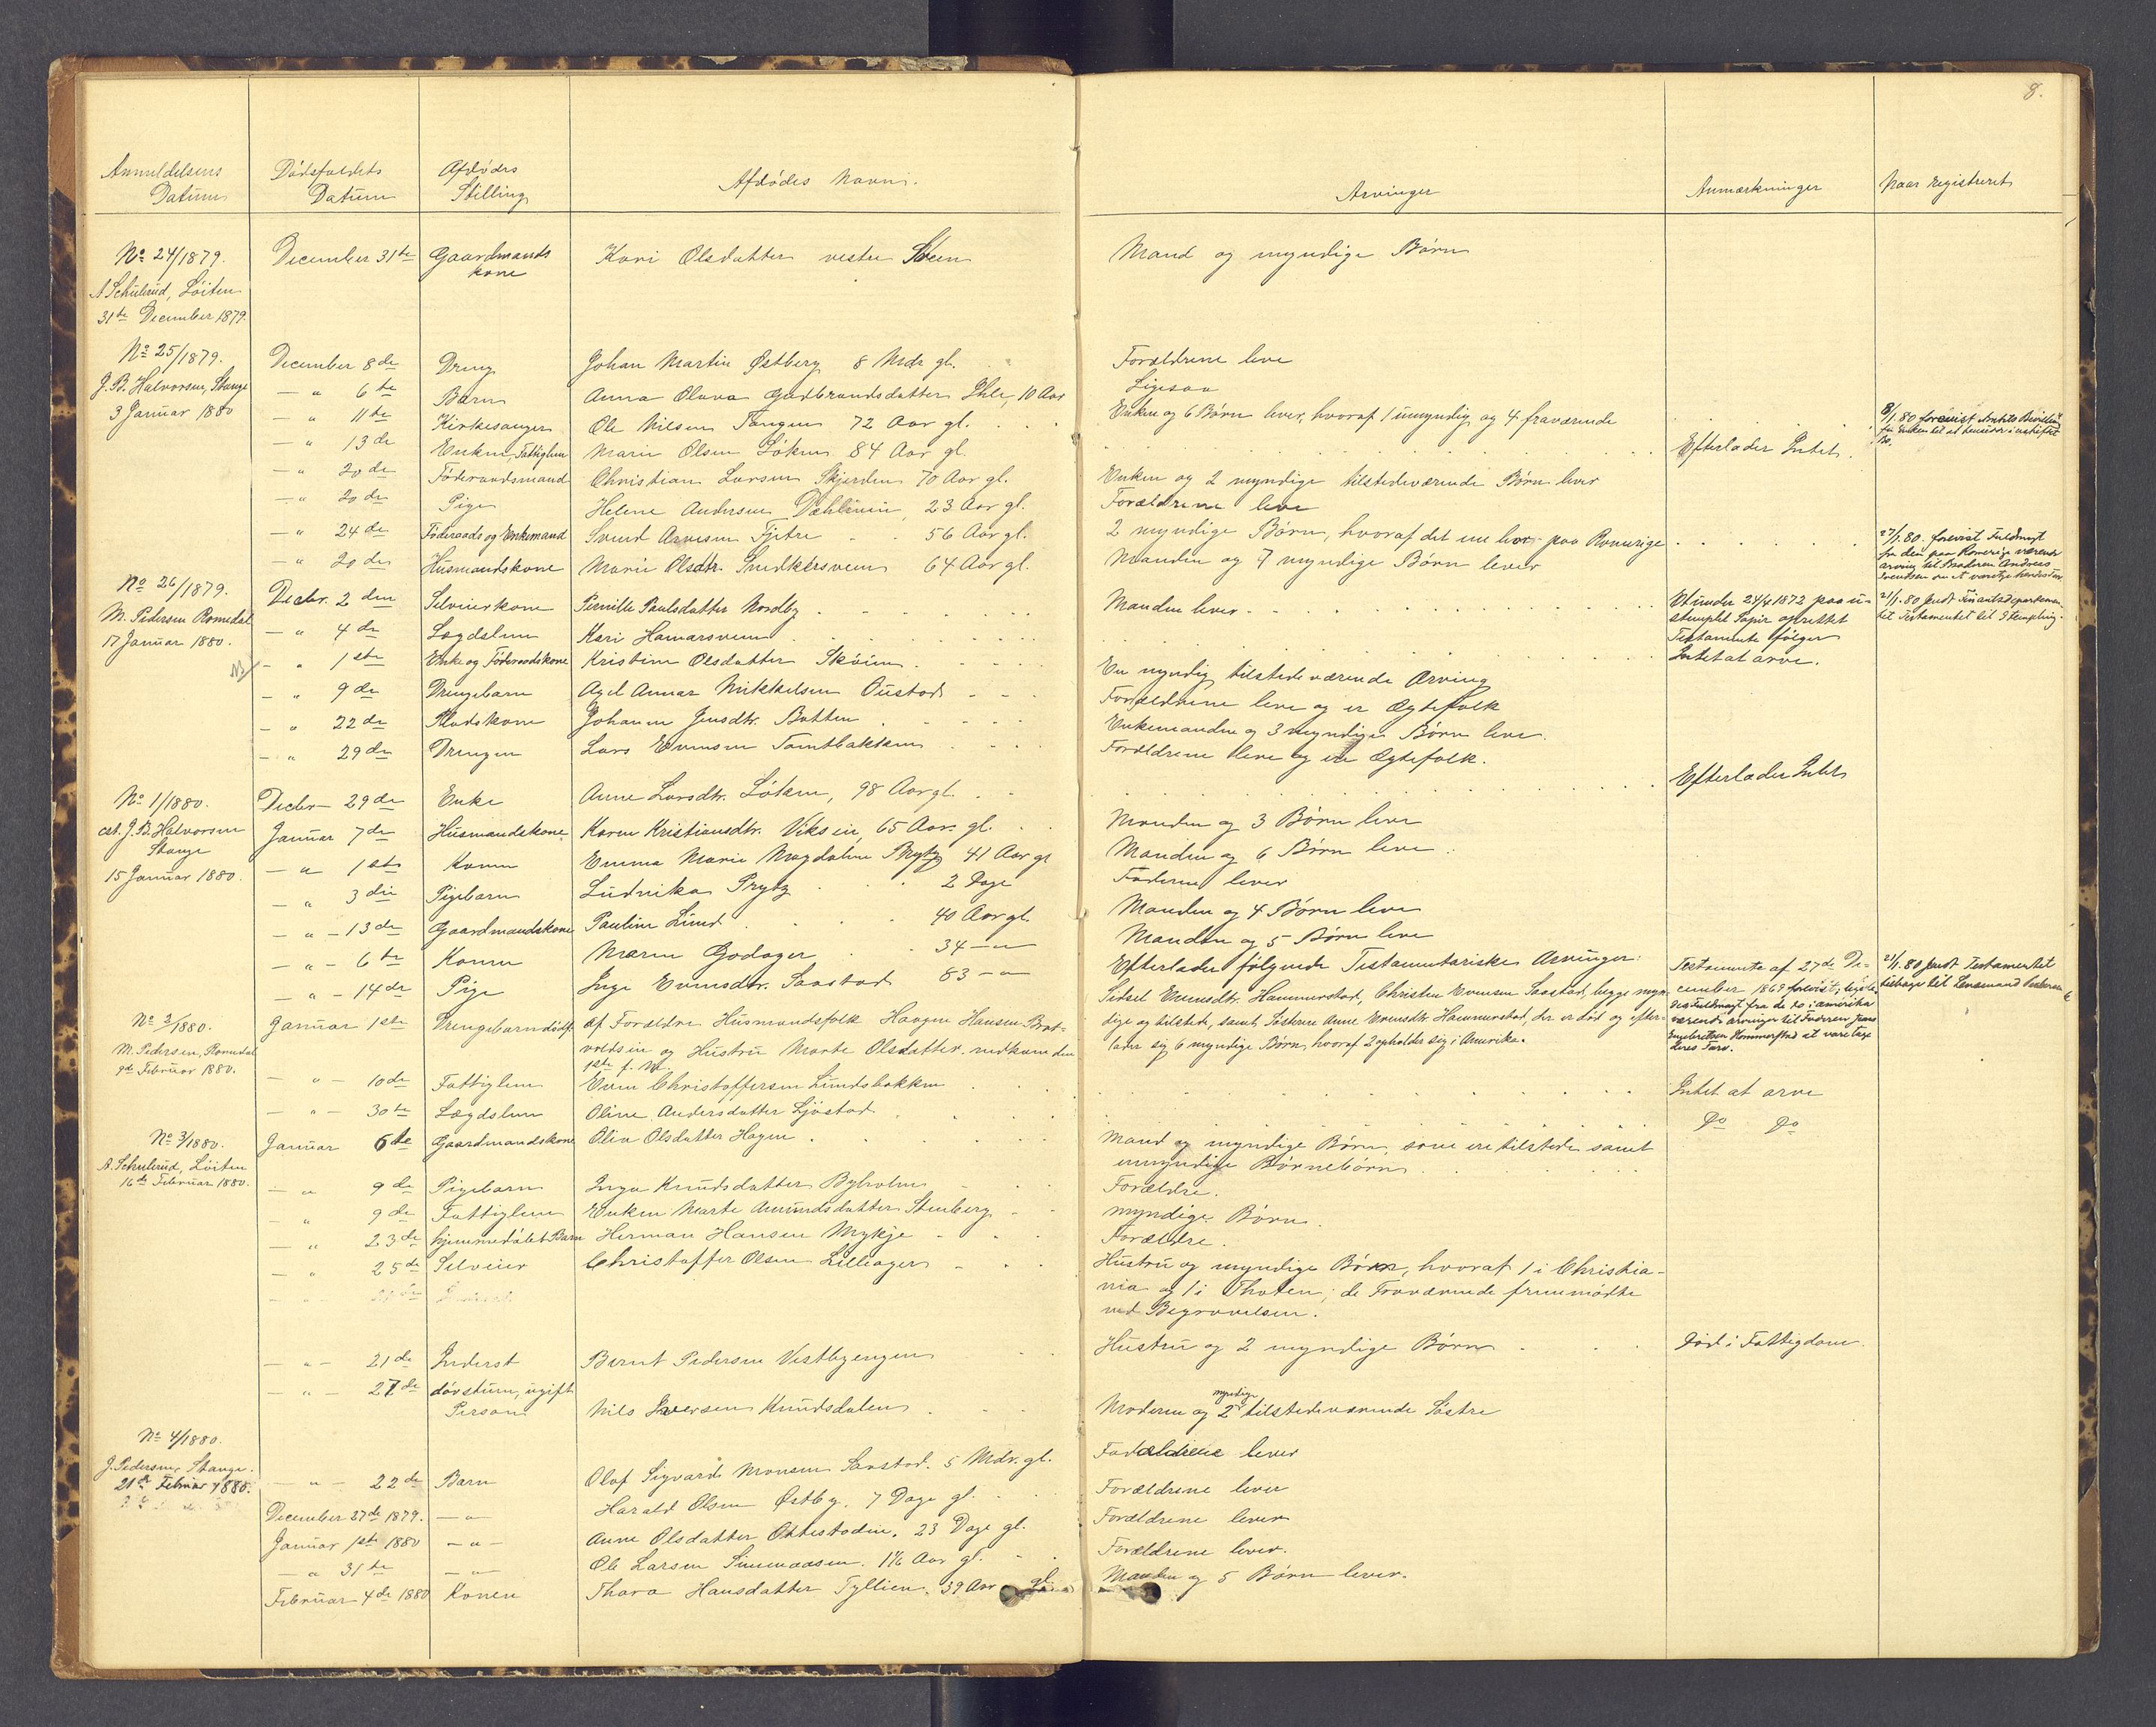 8.
Anmeldelsens Datum Dødsfaldets Datum Afdødes Stilling Afdødes Navn. Arvinger Anmærkninger Naar registreret
No 24/1879. December 31te Gaardmands kone Kari Olsdatter vestre Steen Mand og myndige Børn
A Schulerud, Løiten
31te December 1879.
No 25/1879.
J. B. Halvorsen, Stange
3 Januar 1880
December 8de Dreng Johan Martin Østberg 8 Mdr gl. Forældrene leve
— " 6te Barn Anna Olava Gudbrandsdatter Ihle, 10 Aar Ligesaa
— " 11te Kirkesanger Ole Nilsen Tangen 72 Aar gl. Enken og 6 Børn lever, hvoraf 1 umyndig og 4 fraværende 8/1.80 forevist
— " 13de Enken, Fattiglem Marie Olsen Løken 84 Aar gl. Efterlader Intet.
— " 20de Føderaadsmand Christian Larsen Skjerden 70 Aar gl. Enken og 2 myndige tilstedeværende Børn lever
— " 20de Pige Helene Andersen Dæhlinin, 23 Aar gl. Forældrene leve
— " 24de Føderaads og Enkemand Svend Arvesen Tjetre 56 Aar gl. 2 myndige Børn, hvoraf det ene lever paa Romerige 27/1.80. forevist Fuldmagt fra den paa Romerige værende arving til Broderen Andreas Svendsen om at varetage hendes Tarv
— " 20de Husmandskone Marie Olsdtr. Smedkersveen 64 Aar gl. Manden og 7 myndige Børn lever
No 26/1879.
M. Pedersen Romedal
17 Januar 1880.
Decbr. 2den Selveierkone Pernille Paulsdatter Nordby Manden lever Et under 24/4 1872 paa ustemplet Papir oprettet Testamente følger 21/1.80 sendt Finantsdepartemen. til Testamentet til Stempling.
— " 4de Lægdslem Kari Hamarsveen Intet at arve.
— " 1ste Enke og Føderaadskone Kristine Olsdatter Skøien En myndig tilstedeværende Arving
— " 9de Drengebarn Axel Annar Mikkelsen Oustad Forældrene leve og er Ægtefolk
— " 22de Pladskone Johanne Jensdtr. Botten Enkemanden og 3 myndige Børn leve.
— " 29de Drengen Lars Evensen Tomtbakken Forældrene leve og ere Ægtefolk.
No 1/1880.
cst. J. B. Halvorsen
Stange
15 Januar 1880.
Decbr — 29de Enke Anne Larsdtr. Løken, 98 Aar gl. Efterlader Intet
Januar 7de Husmandskone Karen Kristiansdtr. Viksein, 65 Aar gl. Manden og 3 Børn leve
— " 1ste Konen Emma Marie Magdalene Prytz 41 Aar gl Manden og 6 Børn leve.
— " 3die Pigebarn Ludvika Prytz 2 Dage Faderen lever
— " — 13de Gaardmandskone Pauline Lund 40 Aar gl. Manden og 4 Børn leve
— " — 6te Konen Maren Godager 34 — " Manden og 5 Børn leve
— " — 14de Pige Inge Evensdtr. Saastad 83 — " Efterlader følgende Testamentariske Arvinger:
Sidsel Evensdtr. Hammerstad, Christen Evensen Saastad, begge myndige og tilstede, samt Søsteren Anne Evensdtr Hammerstad, der er død og efterlader sig 6 myndige Børn, hvoraf 2 opholder sig i Amerika.
Testamente af 27de December 1869 forevist; ligeledes Fuldmagt fra de to i Amerika værende arvinger til Faderen Jens Engebretsen Hommerstad at varetage deres Tarv.
21/1.80 sendt Testamentet tilbage til Lensmand Pedersen
No 2/1880.
M. Pedersen, Romedal
9de Februar 1880.
Januar 1ste Drengebarn dødf. af Forældre Husmandsfolk Haagen Hansen Bratvoldsein og Hustru Marte Olsdatter. nedkom den 1ste f. M.
— " — 10de Fattiglem Even Christoffersen Lundsbakken Intet at arve
— " — 30te Lægdslem Oline Andersdatter Ljøstad do do
No 3/1880.
A. Schulerud, Løiten
16de Februar 1880.
Januar 6te Gaardmandskone Olia Olsdatter Hagen Mand og myndige Børn, som ere tilstede samt umyndige Børnebørn
— " 9de Pigebarn Inga Knudsdatter Byholm Forældre.
— " 9de Fattiglem Enken Marte Amundsdatter Stenberg myndige Børn.
— " 23de hjemmedøbt Barn Herman Hansen Mykje Forældre.
— " 25de Selveier Christoffer Olsen Lilleager Hustru og myndige Børn, hvoraf 1 i Christiania og 1 i Thoten; de Fraværende fremmødte ved Begravelsen.
— " — 21de Inderst Bernt Pedersen Vestbyengen Hustru og 2 myndige Børn død i Fattigdom.
— " — 27de døvstum, ugift Person Nils Iversen Knudsdalen Moderen og 2 myndige tilstedeværende Søstre
No 4/1880.
J. Pedersen, Stange.
21de Februar 1880.
— " — 22de Barn Olaf Sigvard Monsen Saastad. 5 Mdr. gl. Forældrene lever
December 27de 1879. — " — Harald Olsen Østby. 7 Dage gl. Forældrene lever
Januar 1ste 1880 — " — Anne Olsdatter Ottestadin, 23 Dage gl. Forældrene lever
— " 31te — " — Ole Larsen Sinnenaasen. 1½ Aar gl. Forældrene lever.
Februar 4de 1880 Konen Thora Hansdatter Tyllien. 39 Aar gl. Manden og 5 Børn lever.